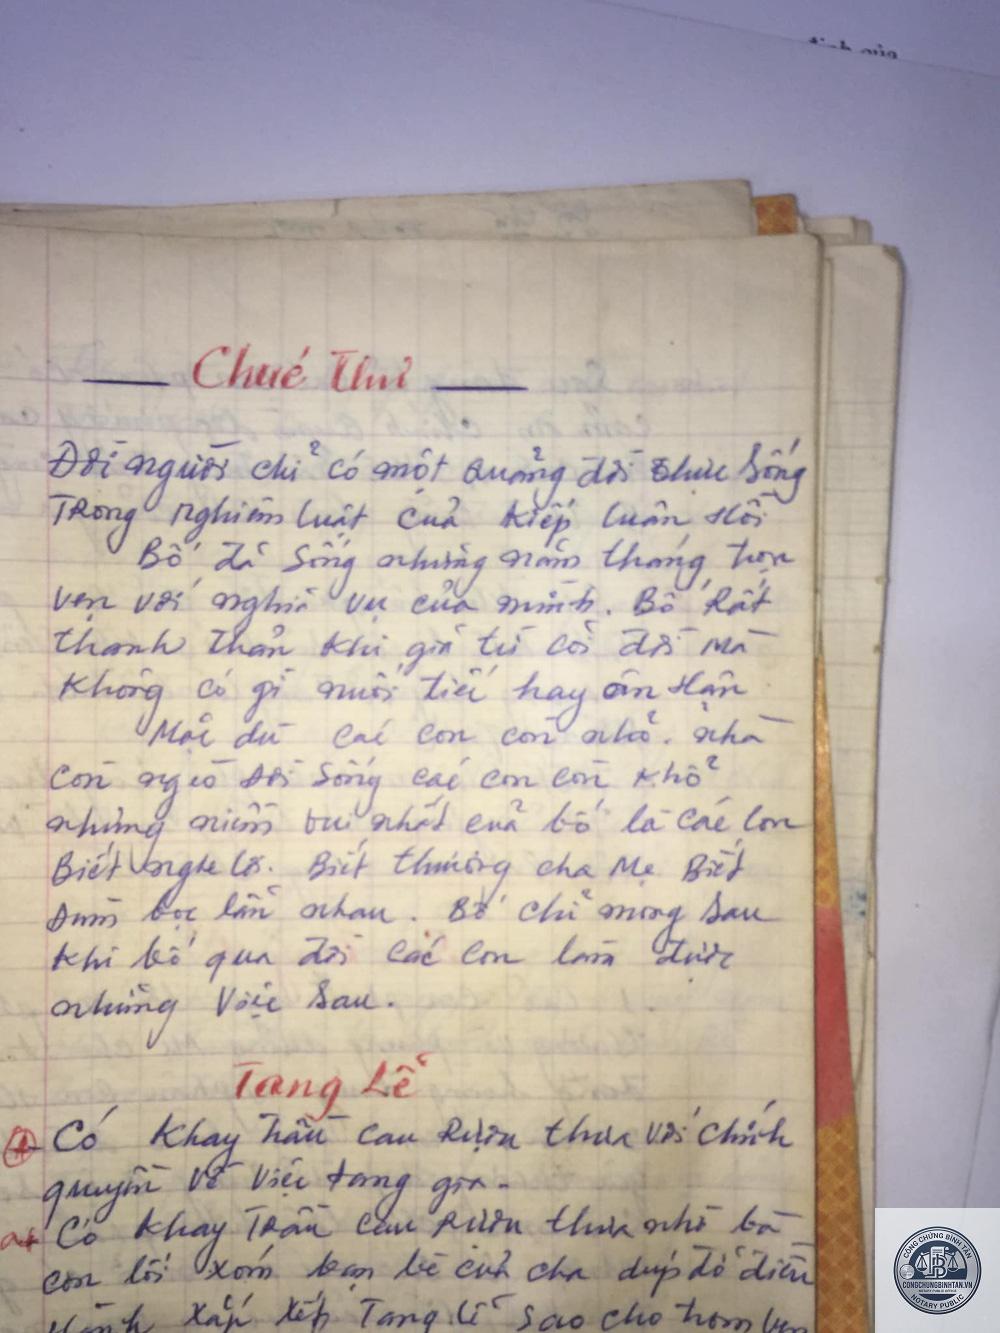 định của
Chúc Thư
Đời người chỉ có một quãng đời thực Sống
Trong nghiêm luật của kiếp luân Hồi
Bố đã Sống những năm tháng trọn
vẹn với nghĩa vụ của mình. Bố Rất
thanh thản khi giã từ cõi đời mà
Không có gì nuối tiếc hay ân Hận
Mặc dù các con còn nhỏ. nhà
còn nghèo đời Sống các con còn Khổ
nhưng niềm vui nhất của bố là các con
Biết nghe lời. Biết thương cha Mẹ Biết
Đùm bọc lẫn nhau. Bố chỉ mong Sau
khi bố qua đời các con làm được
những Việc Sau.
Tang Lễ
Có Khay Trầu cau Rượu thưa với chính
quyền về việc tang gia.
a+ Có Khay Trầu cau Rượu thưa nhờ bà
con lối xóm bạn bè của cha dúp đỡ điều
Hành Xắp Xếp Tang Lễ Sao cho trọn vẹn
CÔNG CHỨNG BÌNH TÂN
CONGCHUNGBINHTAN.VN
NOTARY PUBLIC OFFICE
NOTARY PUBLIC